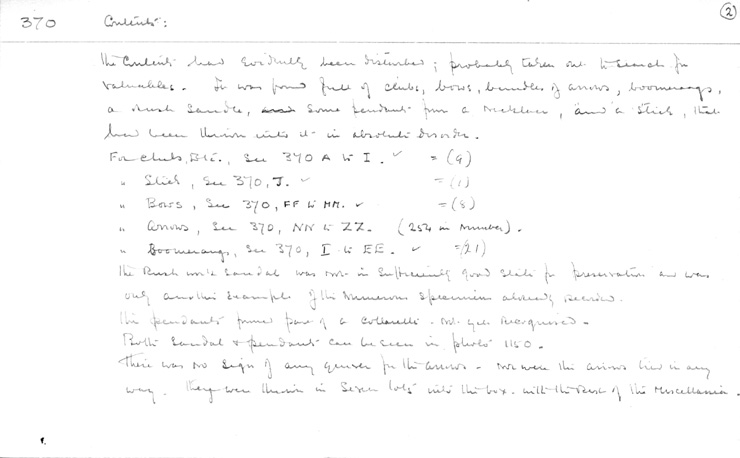 (2)
370 Contents:
The Contents had evidently been disturbed; probably taken out to search for
valuables. It was found full of clubs, bows, bundles of arrows, boomerangs,
a rush sandle, and some pendants from a necklace, and a stick, that
had been thrown into it in absolute disorder.
For clubs, Etc., See 370 A to I. ✓ = (9)
" Stick, See 370, J. ✓ = (1)
" Bows, See 370, FF to MM. ✓ = (8)
" Arrows, See 370, NN to ZZ. (254 in number).
" Boomerangs, See 370, I to EE. ✓ = (21)
The Rush work Sandal was not in sufficiently good state for preservation and was
only another example of the numerous specimens already recorded.
The pendants formed part of a collarette - not yet recognised.
Both Sandal & pendants can be seen in photo 1150.
There was no sign of any quiver for the arrows - nor were the arrows tied in any
way. They were thrown in seven lots into the box with the rest of the miscellanea.